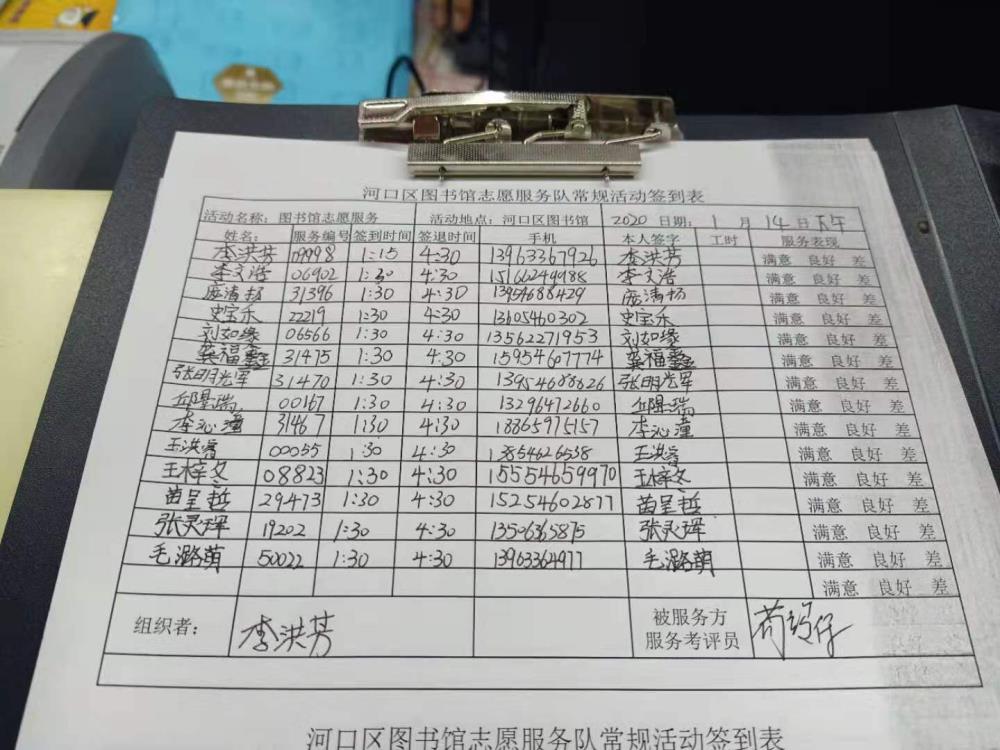 河口区图书馆志愿服务队常规活动签到表
活动名称：图书馆志愿服务 活动地点：河口区图书馆 2020 日期：1 月 14 日下午
姓名： 服务编号 签到时间 签退时间 手机 本人签字 工时 服务表现
李洪芳 09998 1:15 4:30 13963367926 李洪芳 满意 良好 差
李文浩 06902 1:30 4:30 15166249988 李文浩 满意 良好 差
庞清杨 31396 1:30 4:30 13954688429 庞清杨 满意 良好 差
史宝乐 22219 1:30 4:30 13605460302 史宝乐 满意 良好 差
刘如缘 06566 1:30 4:30 13562271953 刘如缘 满意 良好 差
龚福鑫 31475 1:30 4:30 15954607774 龚福鑫 满意 良好 差
张明光军 31470 1:30 4:30 13954688626 张明光军 满意 良好 差
00167 1:30 4:30 13296472660 满意 良好 差
李沁潼 31467 1:30 4:30 18865975157 李沁潼 满意 良好 差
王洪睿 00055 1:30 4:30 13854626538 王洪睿 满意 良好 差
王梓冬 08823 1:30 4:30 15554659970 王梓冬 满意 良好 差
苗呈哲 29473 1:30 4:30 15254602877 苗呈哲 满意 良好 差
张灵珲 19202 1:30 4:30 13506365875 张灵珲 满意 良好 差
毛潞萌 50022 1:30 4:30 13963364977 毛潞萌 满意 良好 差
满意 良好 差
组织者： 李洪芳 被服务方
服务考评员
河口区图书馆志愿服务队常规活动签到表